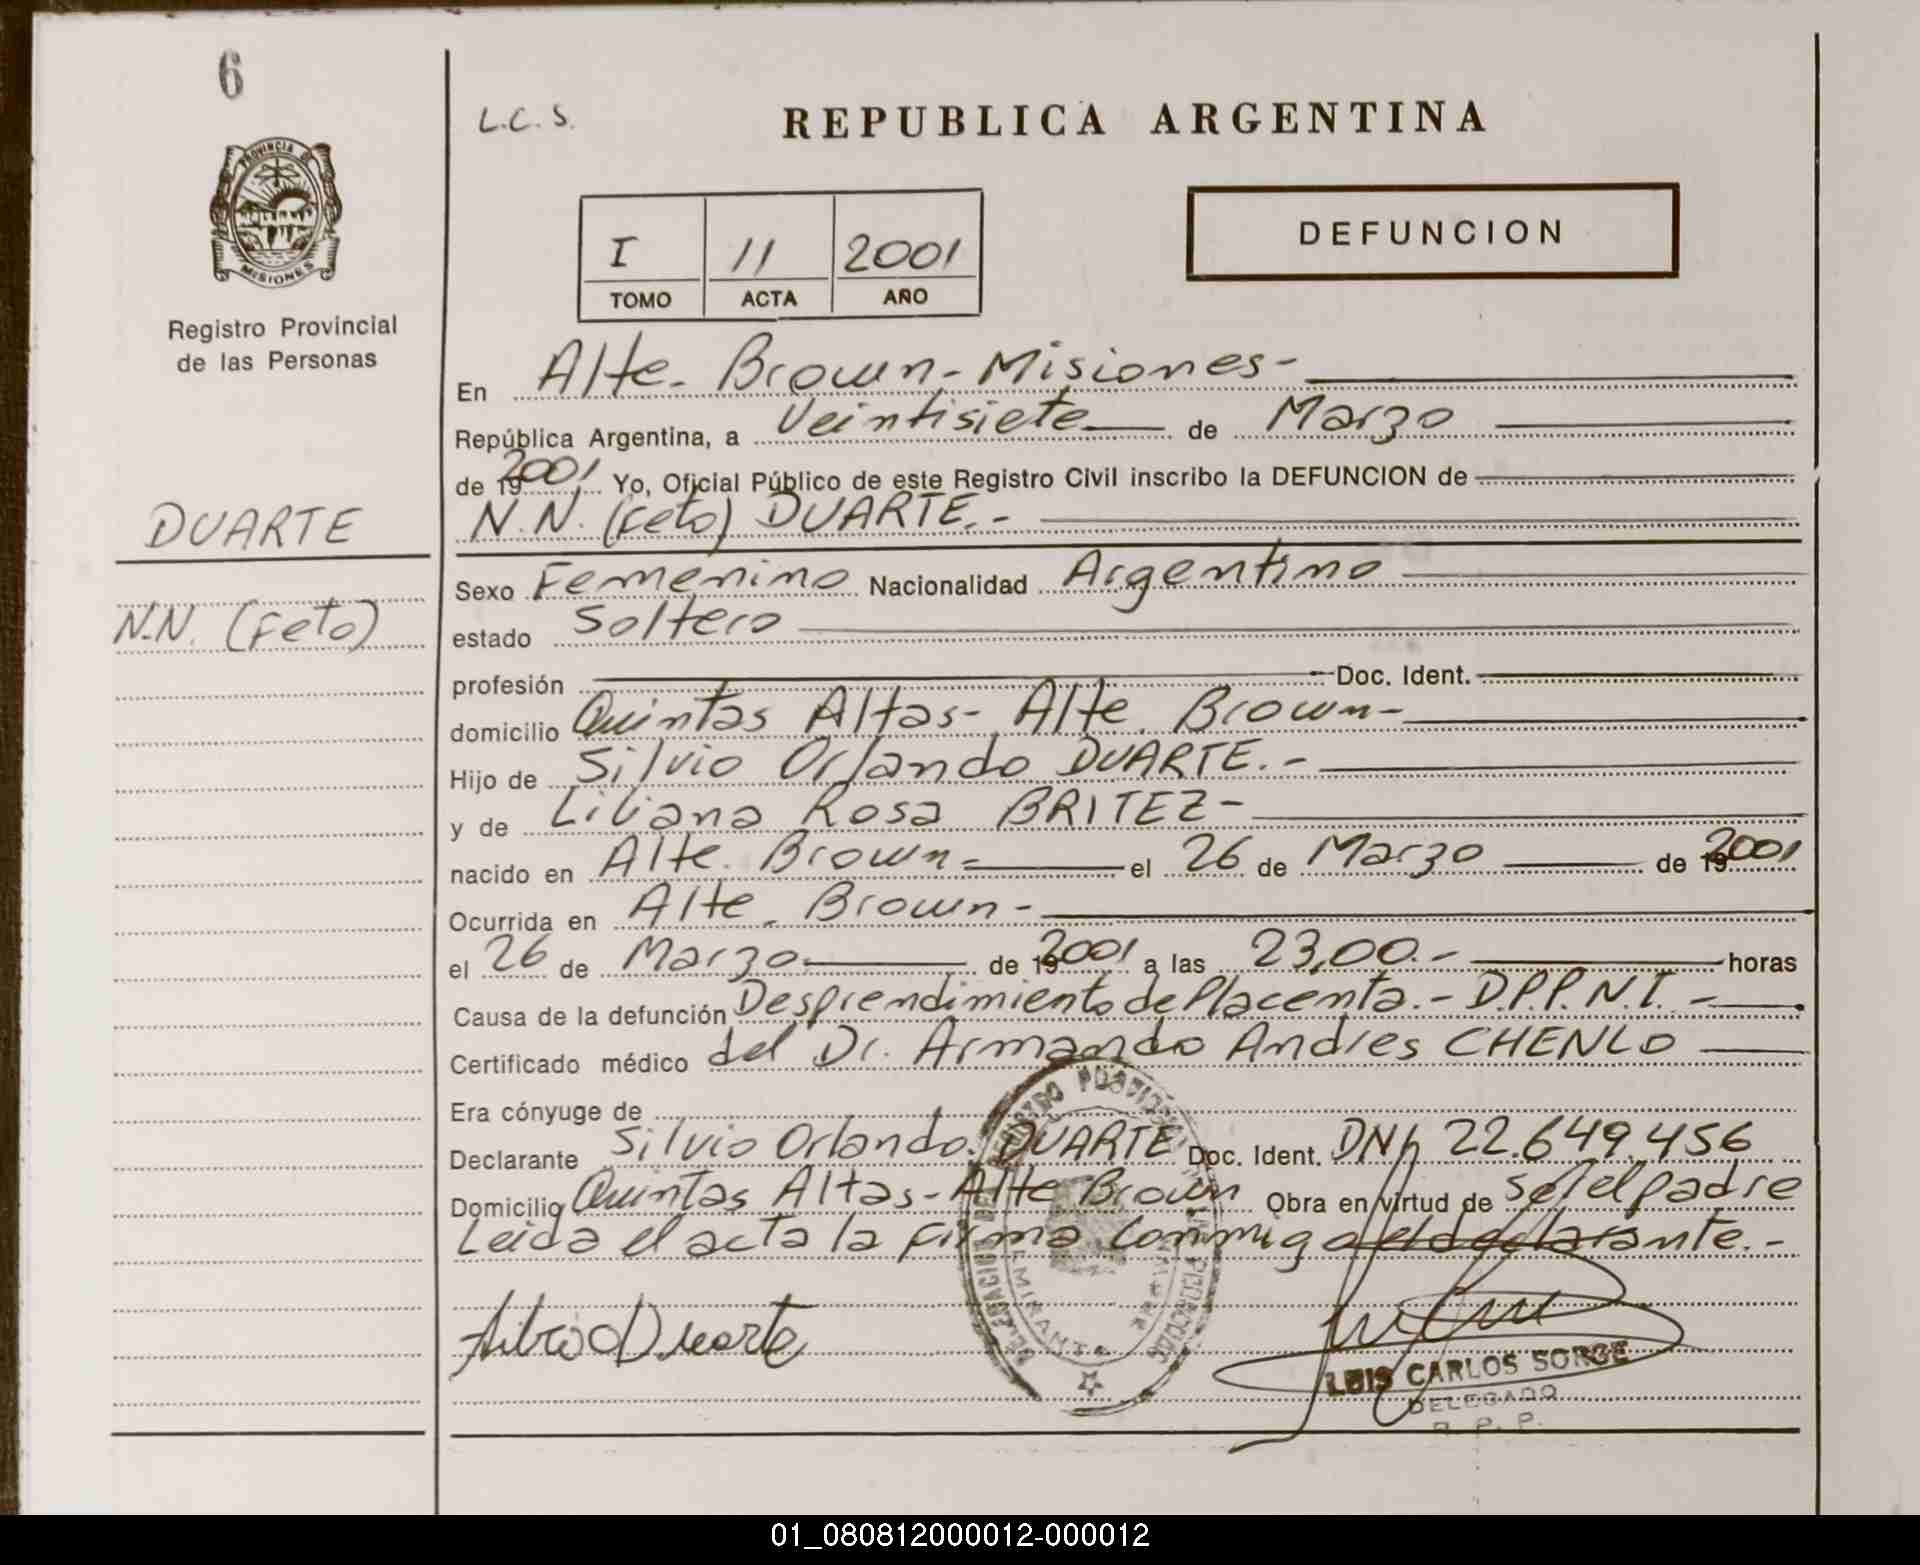 6
L.C.S.
REPUBLICA ARGENTINA
PROVINCIA DE
MISIONES
Registro Provincial
de las Personas
I 11 2001
TOMO ACTA AÑO
DEFUNCION
En Alte. Brown - Misiones -
República Argentina, a Veintisiete de Marzo
de 2001 Yo, Oficial Público de este Registro Civil inscribo la DEFUNCION de
DUARTE
N.N. (Feto) DUARTE. -
N.N. (Feto)
Sexo Femenino Nacionalidad Argentino
estado Soltero
profesión Doc. Ident.
domicilio Quintas Altas - Alte. Brown -
Hijo de Silvio Orlando DUARTE. -
y de Liliana Rosa BRITEZ -
nacido en Alte. Brown - el 26 de Marzo de 2001
Ocurrida en Alte. Brown -
el 26 de Marzo de 2001 a las 23,00. - horas
Causa de la defunción Desprendimiento de Placenta. - D.P.P.N.I. -
Certificado médico del Dr. Armando Andres CHENLO
Era cónyuge de
Declarante Silvio Orlando DUARTE Doc. Ident. DNI 22.649.456
Domicilio Quintas Altas - Alte Brown Obra en virtud de ser el padre
Leida el acta la firma conmigo el declarante. -
Silvio Duarte
LUIS CARLOS SORGE
DELEGADO
R. P. P.
01_080812000012-000012